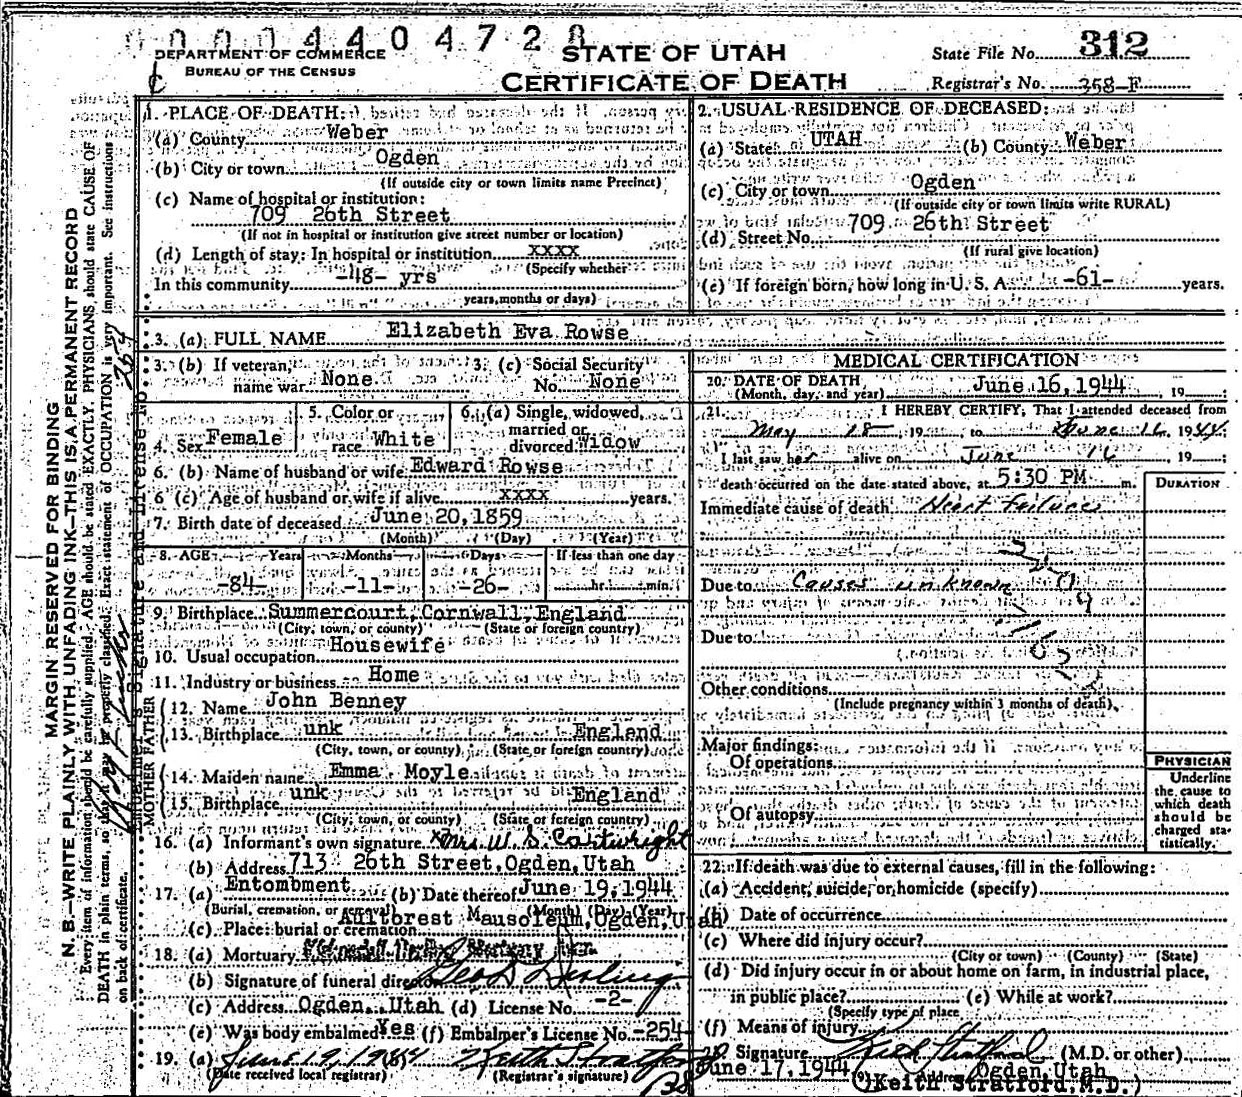 0001440472
DEPARTMENT OF COMMERCE
BUREAU OF THE CENSUS
STATE OF UTAH
CERTIFICATE OF DEATH
State File No. 312
Registrar's No. 358-F
MARGIN RESERVED FOR BINDING
N. B.—WRITE PLAINLY WITH UNFADING INK—THIS IS A PERMANENT RECORD
Every item of information should be carefully supplied. AGE should be stated EXACTLY. PHYSICIANS should state CAUSE OF
DEATH in plain terms, so that it may be properly classified. Exact statement of OCCUPATION is very important. See instructions
on back of certificate.
Embalmer's Signature and License No. 254
1. PLACE OF DEATH:
(a) County Weber
(b) City or town Ogden
(If outside city or town limits name Precinct)
(c) Name of hospital or institution:
709 26th Street
(If not in hospital or institution give street number or location)
(d) Length of stay: In hospital or institution xxxx
(Specify whether
In this community -48- yrs
years, months or days)
2. USUAL RESIDENCE OF DECEASED:
(a) State UTAH (b) County Weber
(c) City or town Ogden
(If outside city or town limits write RURAL)
(d) Street No. 709 26th Street
(If rural give location)
(e) If foreign born, how long in U. S. A. -61- years.
3. (a) FULL NAME Elizabeth Eva Rowse
3. (b) If veteran, name war None
3. (c) Social Security No. None
4. Sex Female
5. Color or race White
6. (a) Single, widowed, married or divorced Widow
6. (b) Name of husband or wife Edward Rowse
6 (c) Age of husband or wife if alive xxxx years.
7. Birth date of deceased June 20, 1859
(Month) (Day) (Year)
8. AGE Years Months Days If less than one day
-84- -11- -26- hr. min.
9. Birthplace Summercourt, Cornwall, England
(City, town, or county) (State or foreign country)
10. Usual occupation Housewife
11. Industry or business Home
FATHER
12. Name John Benney
13. Birthplace unk England
(City, town, or county) (State or foreign country)
MOTHER
14. Maiden name Emma Moyle
15. Birthplace unk England
(City, town, or county) (State or foreign country)
16. (a) Informant's own signature x Mrs. W. S. Cartwright
(b) Address 713 26th Street, Ogden, Utah
17. (a) Entombment (b) Date thereof June 19, 1944
(Burial, cremation, or removal) (Month) (Day) (Year)
(c) Place: burial or cremation Aultorest Mausoleum, Ogden, Utah
18. (a) Mortuary
(b) Signature of funeral director
(c) Address Ogden, Utah (d) License No. -2-
(e) Was body embalmed Yes (f) Embalmer's License No. -254
19. (a) June 19, 1944 Keith Stratford
(Date received local registrar) (Registrar's signature)
MEDICAL CERTIFICATION
20. DATE OF DEATH June 16, 1944, 19
(Month, day, and year)
21. I HEREBY CERTIFY, That I attended deceased from
May 18, 19 , to June 16, 1944;
I last saw her alive on June 16, 19 ;
death occurred on the date stated above, at 5:30 PM m.
DURATION
Immediate cause of death Heart failure
Due to Causes unknown
Due to
Other conditions
(Include pregnancy within 3 months of death)
Major findings:
Of operations
Of autopsy
PHYSICIAN
Underline
the cause to
which death
should be
charged sta-
tistically.
22. If death was due to external causes, fill in the following:
(a) Accident, suicide, or homicide (specify)
(b) Date of occurrence
(c) Where did injury occur?
(City or town) (County) (State)
(d) Did injury occur in or about home on farm, in industrial place,
in public place? (e) While at work?
(Specify type of place
(f) Means of injury
23. Signature Keith Stratford (M.D. or other)
June 17, 1944 Address Ogden, Utah
(Keith Stratford, M.D.)